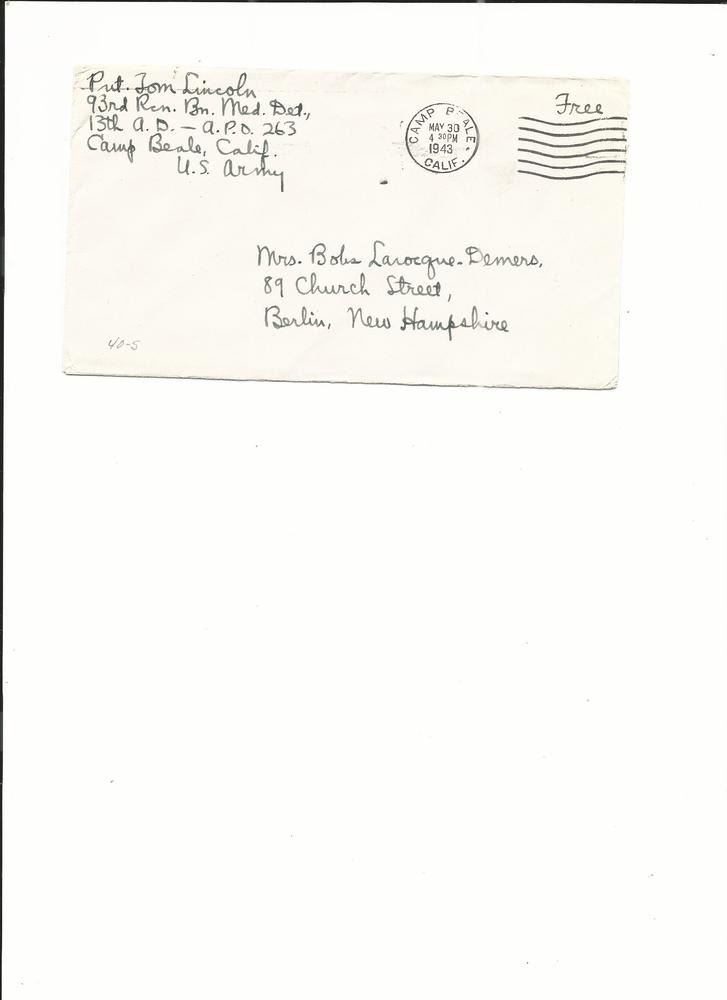 Pvt. Tom Lincoln
93rd Rcn. Bn. Med. Det.,
13th A. D. – A.P.O. 263
Camp Beale, Calif.
U.S. Army
CAMP BEALE
MAY 30
4 30PM
1943
CALIF.
Free
Mrs. Bobs Larocque-Demers,
89 Church Street,
Berlin, New Hampshire
40-5